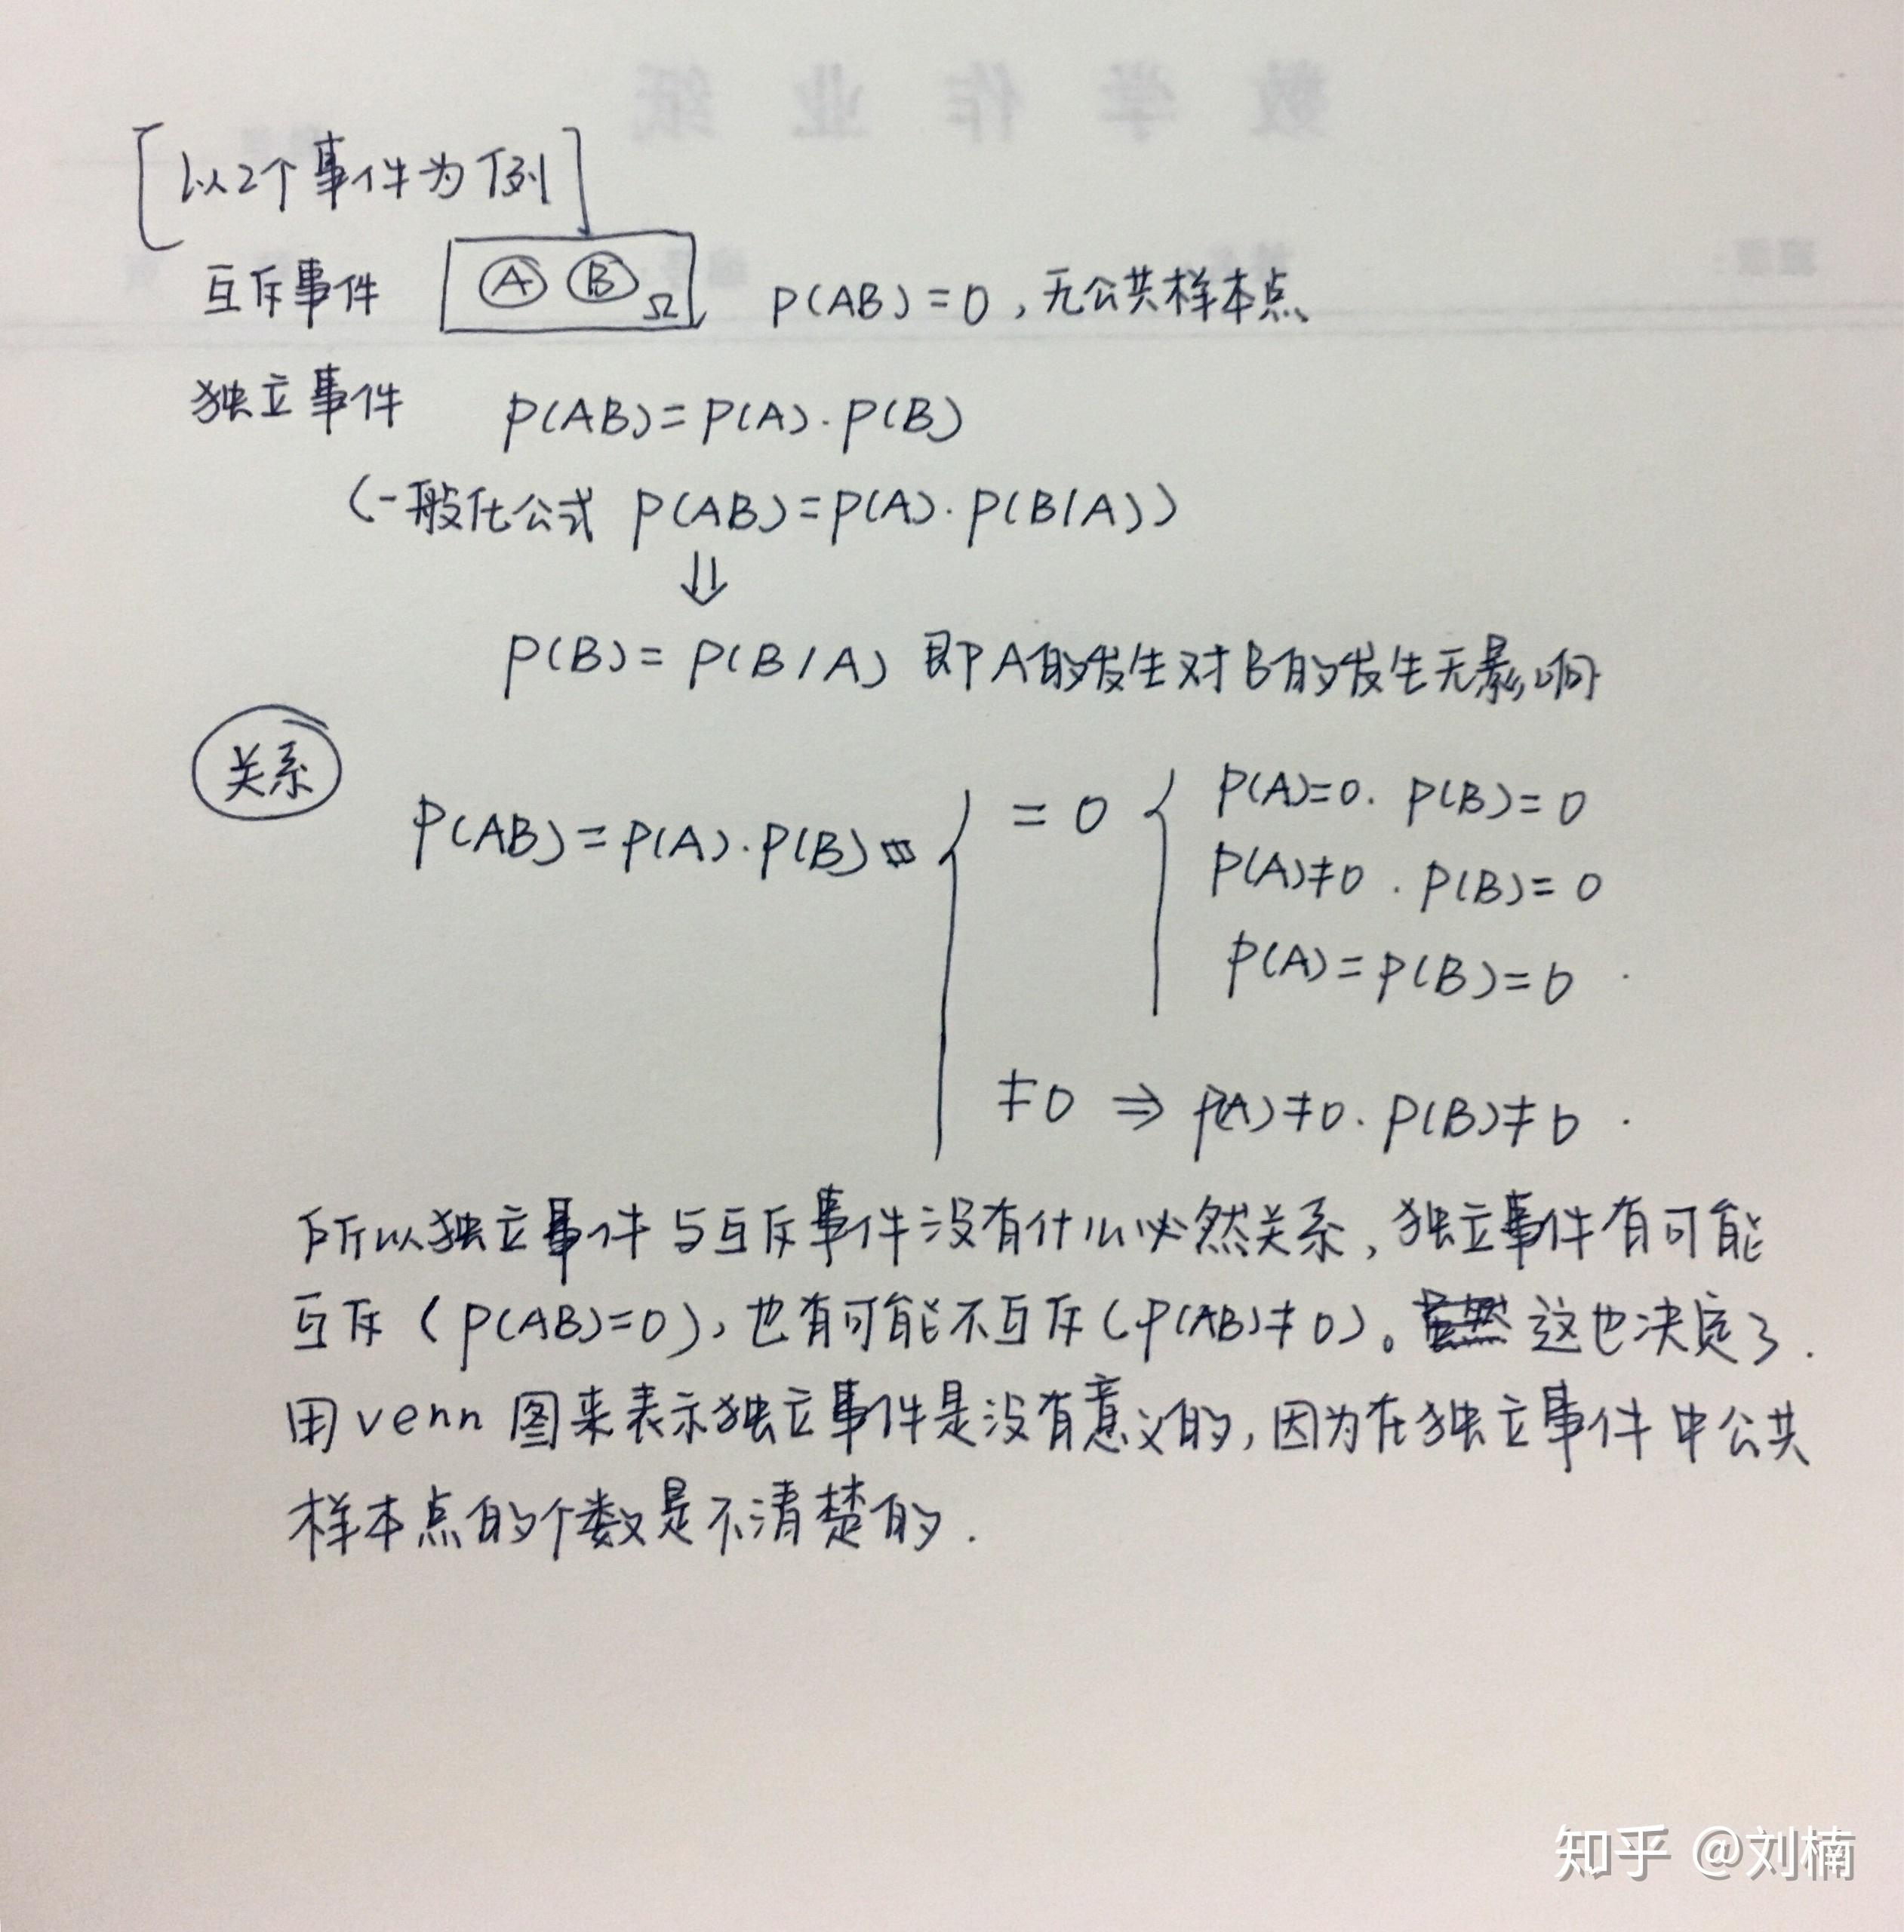 数学作业纸
[以2个事件为例]
互斥事件 A B Ω P(AB)=0,无公共样本点
独立事件 P(AB)=P(A)·P(B)
(一般化公式 P(AB)=P(A)·P(B|A))
⇓
P(B)=P(B|A) 即A的发生对B的发生无影响
关系
P(A)=0. P(B)=0
P(AB)=P(A)·P(B) { =0 {
P(A)≠0. P(B)=0
P(A)=P(B)=0.
≠0 ⇒ P(A)≠0. P(B)≠0.
所以独立事件与互斥事件没有什么必然关系,独立事件有可能
互斥(P(AB)=0),也有可能不互斥(P(AB)≠0)。这也决定了.
用venn图来表示独立事件是没有意义的,因为在独立事件中公共
样本点的个数是不清楚的.
知乎 @刘楠